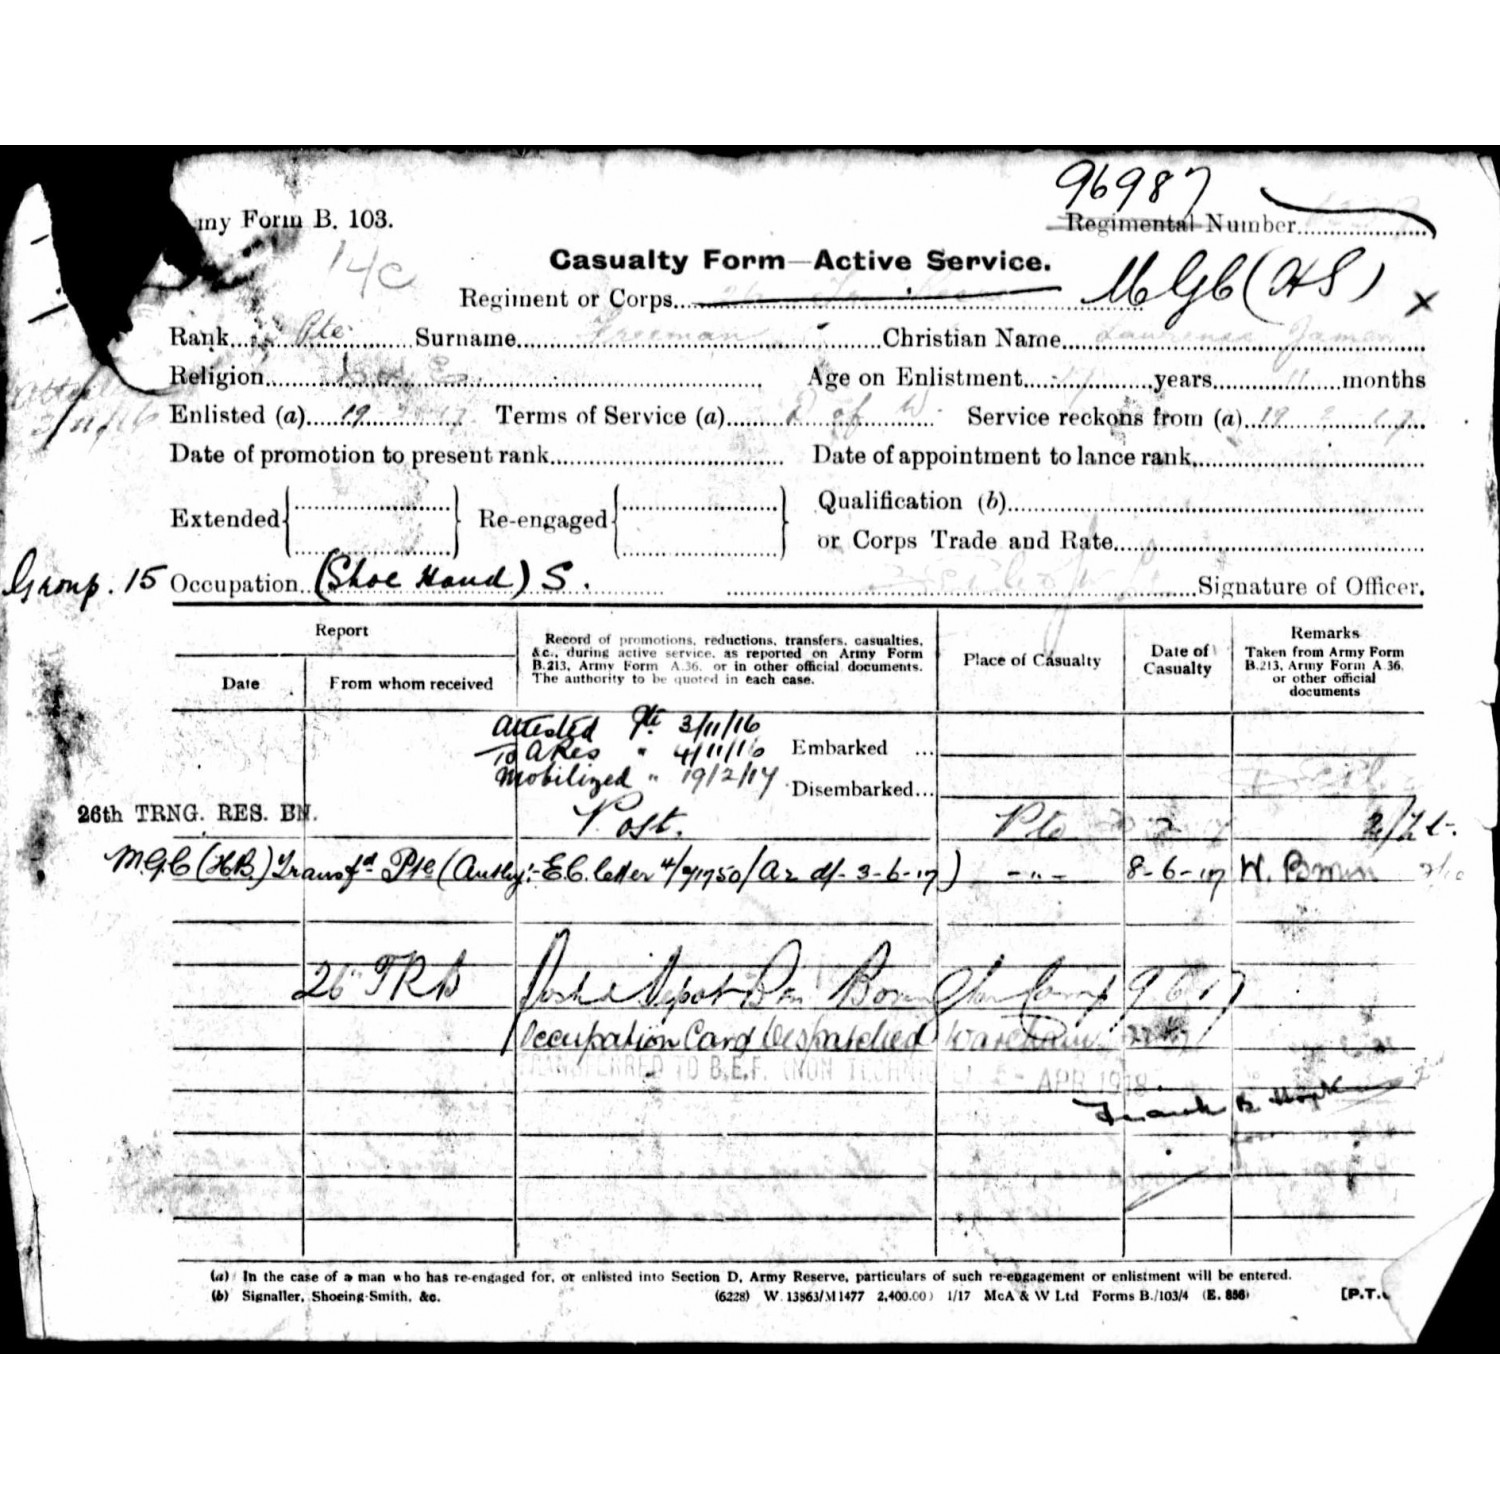 96987
my Form B. 103.
Regimental Number
14C
Casualty Form—Active Service.
Regiment or Corps
MGC (HS) X
Rank Pte Surname Freeman Christian Name Lawrence James
Religion C of E Age on Enlistment years 11 months
Attested 3/11/16
Enlisted (a) 19 2 17 Terms of Service (a) D of W Service reckons from (a) 19 2 17
Date of promotion to present rank Date of appointment to lance rank
Extended Re-engaged Qualification (b)
or Corps Trade and Rate
Group. 15 Occupation (Shoe Hand) S. Signature of Officer.
Report
Date From whom received
Record of promotions, reductions, transfers, casualties, &c., during active service, as reported on Army Form B.213, Army Form A.36, or in other official documents. The authority to be quoted in each case.
Place of Casualty
Date of Casualty
Remarks
Taken from Army Form B.213, Army Form A 36. or other official documents
Attested Pte 3/11/16
To A Res " 4/11/16 Embarked ...
Mobilized " 19/2/17 Disembarked...
26th TRNG. RES. BN. Post. Pte
M.G.C (H.B.) Transfd Pte (Authy:- E.C. letter 4/91750/A2 df- 3-6-17) -"- 8-6-17 W.
26 TRB Posted Depot Bn Camp 9 6 17
Occupation Card Despatched Wareham
TRANSFERRED TO B.E.F. (NON TECHNICAL) - APR 1918.
Frank B
(a) In the case of a man who has re-engaged for, or enlisted into Section D, Army Reserve, particulars of such re-engagement or enlistment will be entered.
(b) Signaller, Shoeing-Smith, &c. (6228) W. 13863/M1477 2,400.00) 1/17 McA & W Ltd Forms B./103/4 (E. 856) [P.T.